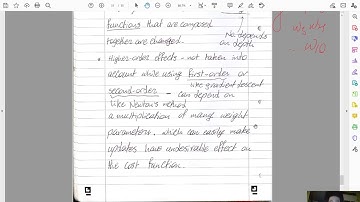 functions that are composed
together are changed.
No. depends
on depth
Higher-order effects - not taken into
account while using first-order or
like gradient descent
second-order - can depend on
like Newton's method
a multiplication of many weight
parameters. which can easily make
updates have undesirable effect on
the cost function.